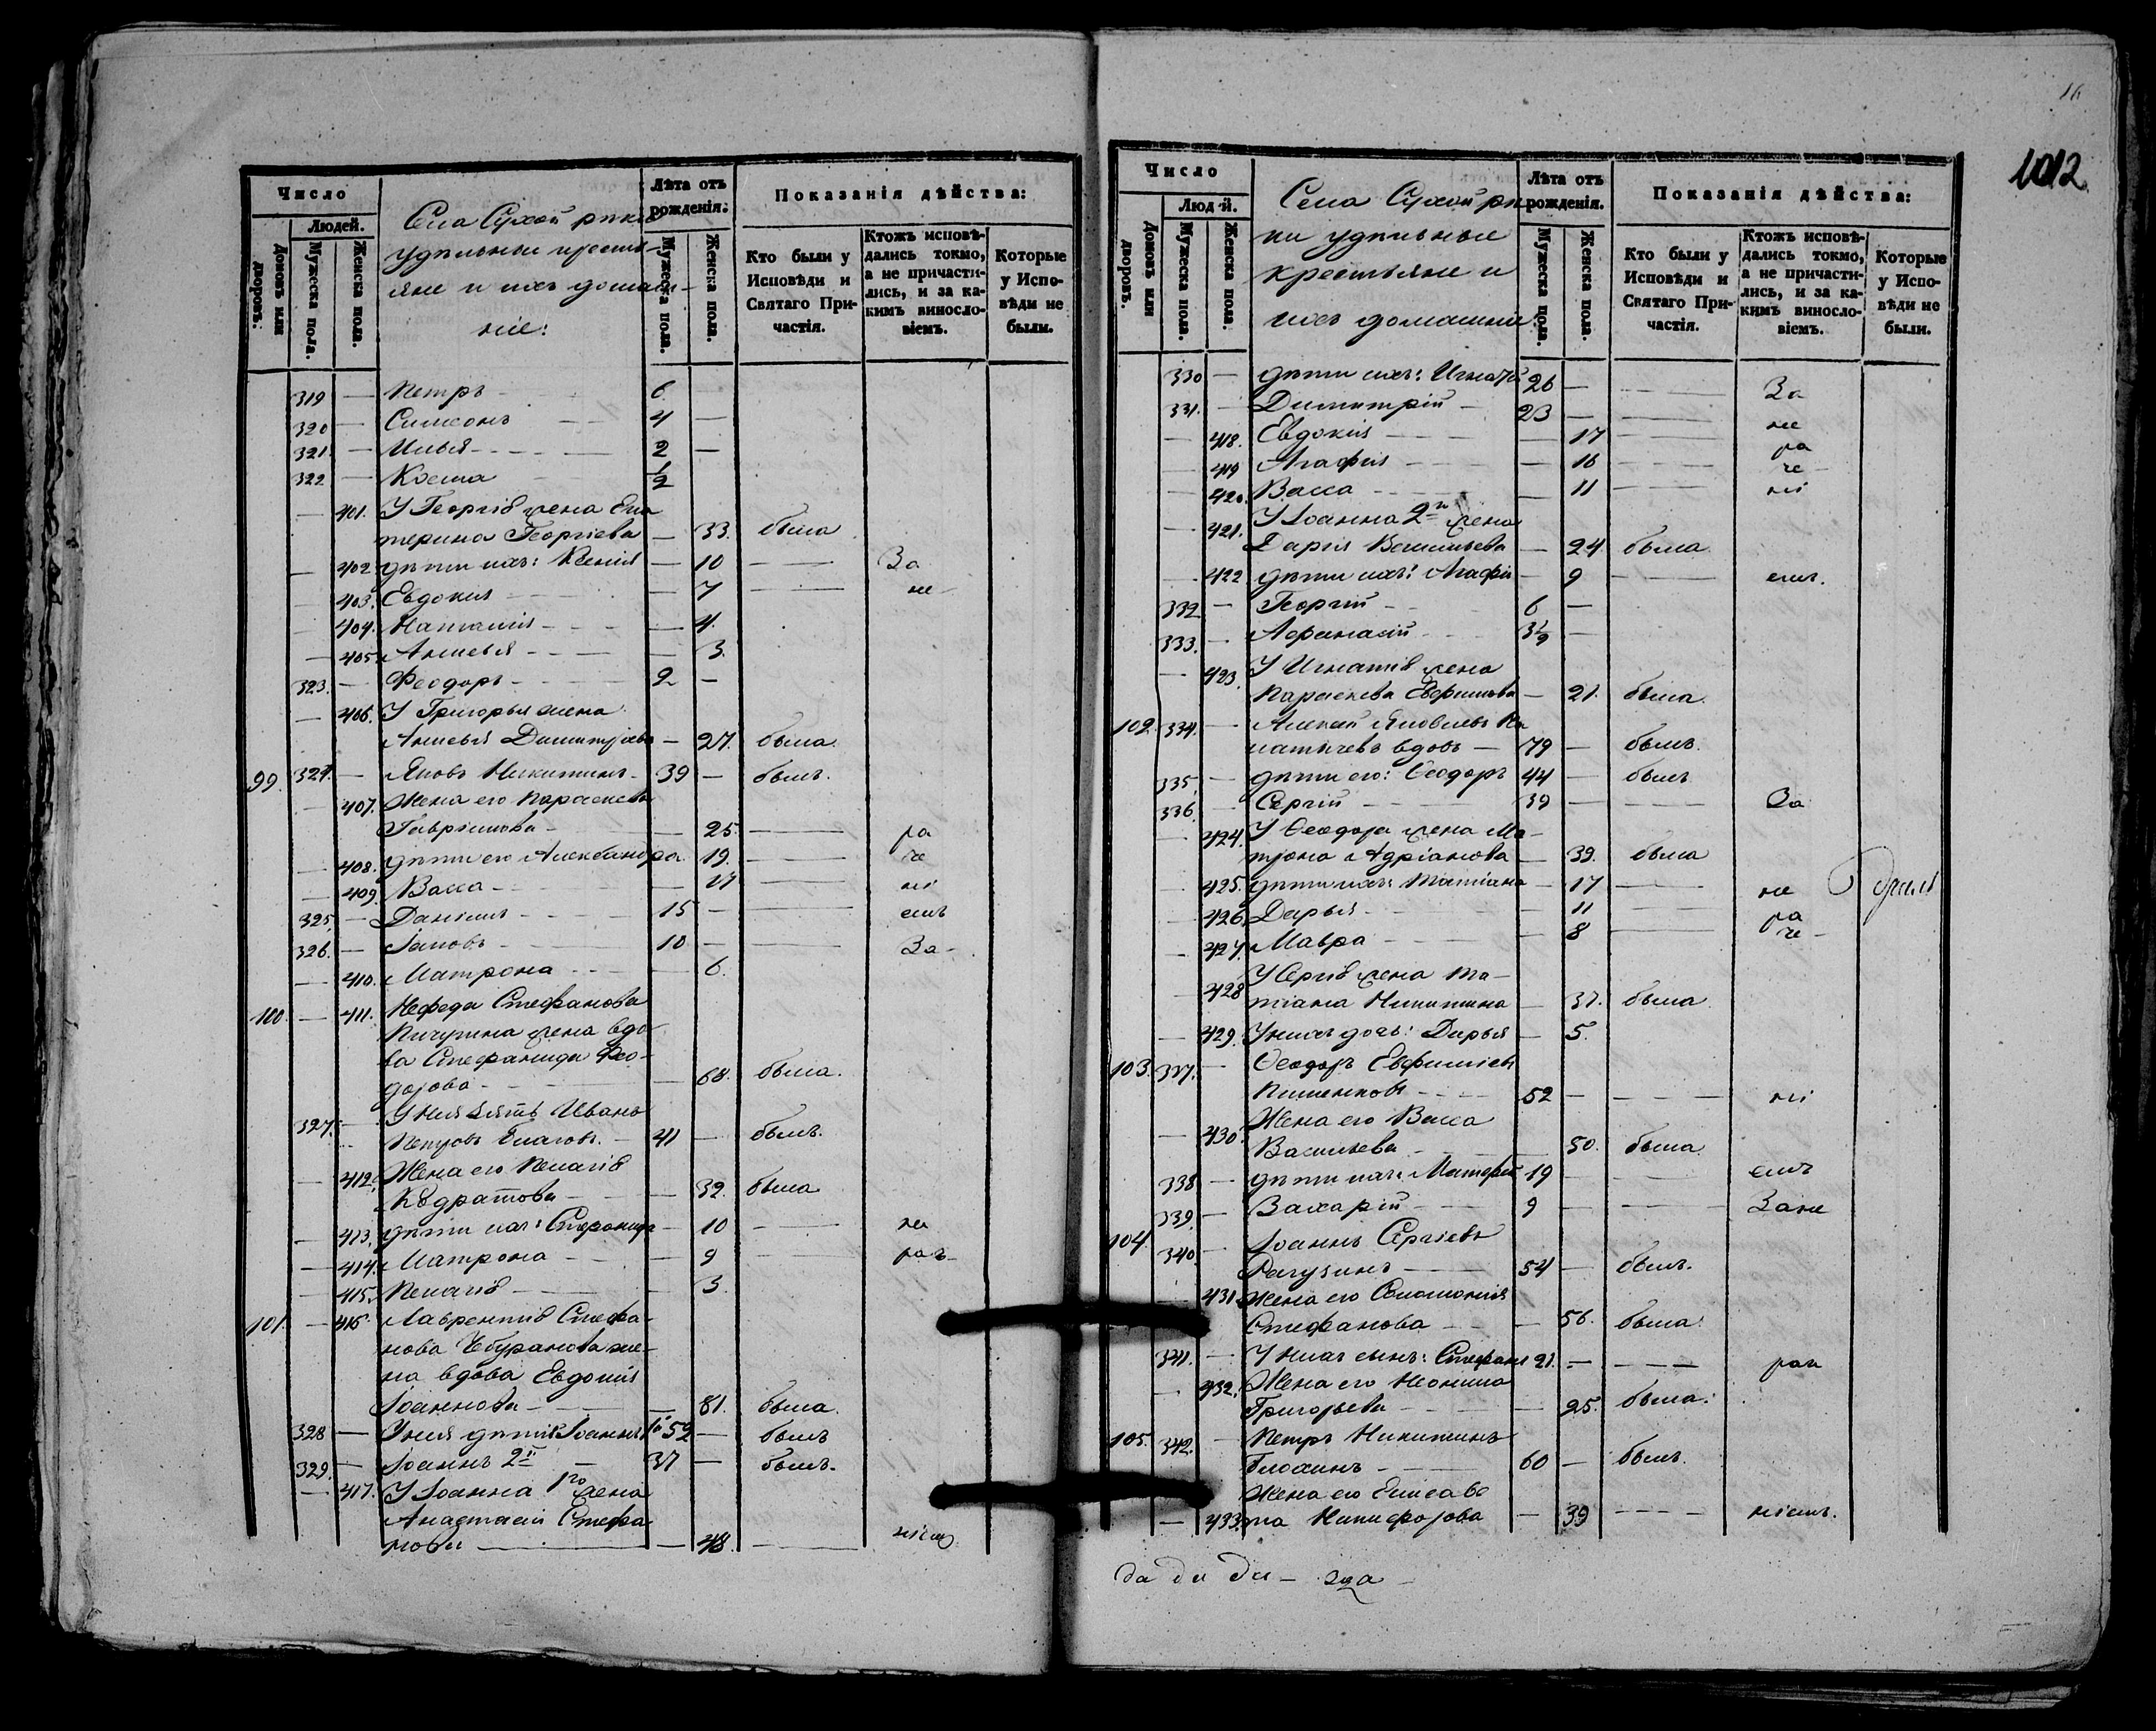 Число
Людей.
Домовъ или дворовъ.
Мужеска пола.
Женска пола.
Села Сухой рѣки
удѣльныи кресть-
яне и ихъ домаш-
ніе:
Лѣта отъ рожденія.
Мужеска пола.
Женска пола.
Показанія дѣйства:
Кто были у Исповѣди и Святаго Причастія.
Ктожъ исповѣдались токмо, а не причастились, и за какимъ винословіемъ.
Которые у Исповѣди не были.
319 — Петръ — 6
320 — Симеонъ — 4 —
321 — Илья — 2 —
322 — Косма — 1/2
— 401. У Георгія жена Ека
терина Георгіева — 33. была
— 402 дѣти ихъ: Ксенія — 10 — За
— 403. Евдокия — 7 — не
— 404. Наталия — 4.
— 405. Анисья — 3.
323. — Феодоръ — 2 —
— 406. У Григорья жена
Анисья Димитріева — 27. была.
99. 324. — Яковъ Никитинъ — 39 — былъ.
— 407. Жена его Параскева
Гавріилова — 25 — ра
— 408. дѣти его Александра 19. — че
— 409. Васса — 17 — ні
325. — Даніилъ — 15 — емъ
326. — Іаковъ — 10 — За
— 410. Матрона — 6.
100. — 411. Нефеда Стефанова
Пичугина жена вдо
ва Стефанида Фео-
дорова — 68. была.
327. — У нея зять Иванъ
Петровъ — 41 — былъ.
— 412. Жена его Пелагія
Кодратова — 32. была
— 413. дѣти ихъ: Стефанида — 10 — не
— 414. Матрона — 9 — рач
— 415. Пелагія — 3.
101. — 416 Лаврентія Стефа-
нова Чебуранова же-
на вдова Евдокия
Іоаннова — 81. была.
328 — У нея дѣти Іоаннъ 1й 52 — былъ
329. — Іоаннъ 2й — 37 — былъ.
— 417. У Іоанна 1го жена
Анастасія Стефа
нова — 48. — ніемъ
16
1012
Число
Людей.
Домовъ или дворовъ.
Мужеска пола.
Женска пола.
Села Сухой рѣ
ки удѣльные
крестьяне и
ихъ домашние
Лѣта отъ рожденія.
Мужеска пола.
Женска пола.
Показанія дѣйства:
Кто были у Исповѣди и Святаго Причастія.
Ктожъ исповѣдались токмо, а не причастились, и за какимъ винословіемъ.
Которые у Исповѣди не были.
330 — дѣти ихъ: Игнатій 26 — За
331. — Димитрій — 23 —
— 418. Евдокия — 17 — не
— 419 Агафия — 16 — ра че
— 420. Васса — 11 — ні
— 421. У Іоанна 2го жена
Дарья Васильева — 24. была.
— 422 дѣти ихъ: Агафія — 9 — емъ.
332 — Георгій — 6 —
333. — Афанасій — 3 1/2 —
— 423. У Игнатія жена
Параскева Ефимова — 21. была.
102. 334. — Алексѣй Яковлевъ
вдовъ — 79 — былъ.
335. — дѣти его: Ѳеодоръ 44 — былъ
336. — Сергій — 39 — За
— 424. У Ѳеодора жена Ма-
трона Адріанова — 39. была
— 425. дѣти ихъ: Татіана — 17 — не
— 426. Дарья — 11 — ра
— 427. Мавра — 8 — че
— 428 У Сергія жена Та-
тіана Никитина — 37. была.
— 429. У нихъ дочь: Дарья — 5.
103. 337. — Ѳеодоръ Евфиміевъ
52 — ні
— 430. Жена его Васса
Васильева — 50. была
338 — дѣти ихъ: Матфей 19 — емъ
339. — Захарій — 9 — Зане
104. 340. — Іоаннъ Сергіевъ
Рагузинъ — 54 — былъ.
431. Жена его Соломонія
Стефанова — 56. была.
341. — У нихъ сынъ: Стефанъ 21. — рач
— 432. Жена его Неонила
Григорьева — 25. была.
105. 342. — Петръ Никитинъ
Блохинъ — 60 — былъ.
Жена его Елисаве
— 433 та Никифорова — 39 — ніемъ.